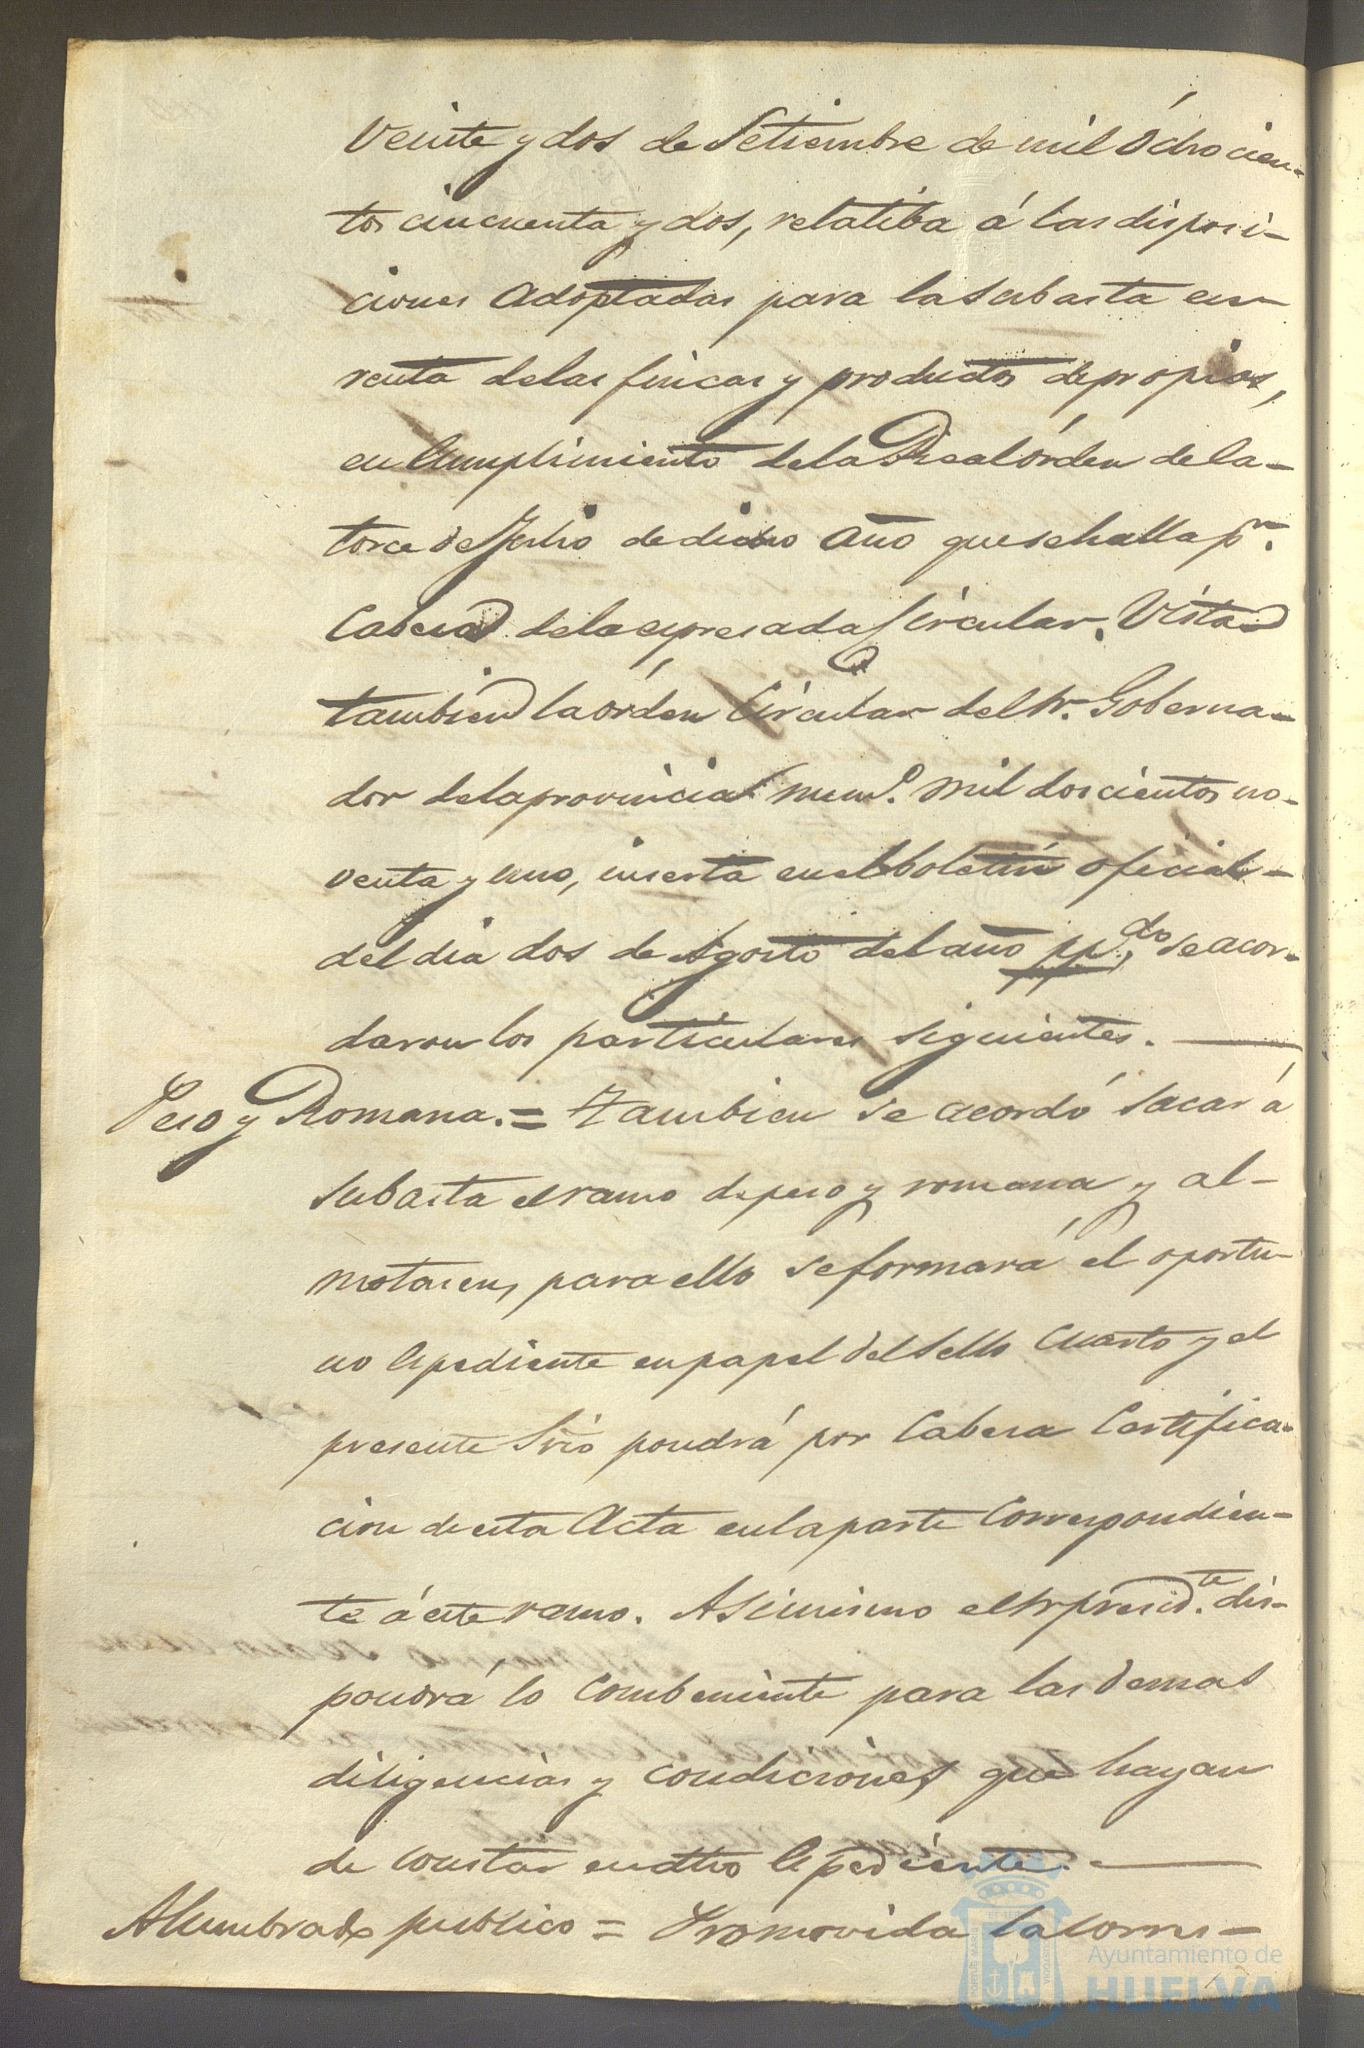 Veinte y dos de Setiembre de mil óchocien-
tos cincuenta y dos, relatiba á las disposi-
ciones adoptadas para la subasta en
renta delas fincas y productos de propios,
en Cumplimiento dela Real órden de ca-
torce de Julio de dicho año que se halla pr.
Cabesa dela espresada Circular. Vista
tambien la órden Circular del Sr. Goberna-
dor dela provincia numo. mil doscientos no-
venta y uno, inserta en el boletin oficial -
del dia dos de Agosto del año ppdo, se acor-
daron los particulares siguientes. -
Peso y Romana. = Tambien se acordó sacar á
subasta el ramo de peso y romana y al-
motasen, para ello se formará el oportu-
no Espediente en papel del Sello Cuarto y el
presente Srio pondrá por Cabesa Certifica-
cion de esta Acta en la parte Correspondien-
te á este ramo. Asimismo el Sr presid.te dis-
pondrá lo Combeniente para las demas
diligencias y condiciones que hayan
de constar en dho Espediente. -
Alumbrado publico = Promovida la corres-
Ayuntamiento de
HUELVA